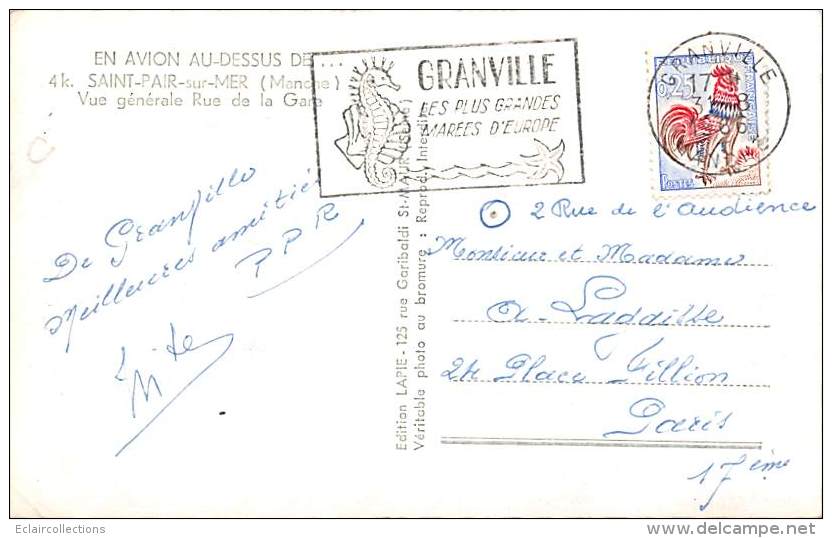 EN AVION AU-DESSUS DE ...
4 k. SAINT-PAIR-sur-MER (Manche)
Vue générale Rue de la Gare
De Granville
Meilleures amitiés
P P R
Edition LAPIE - 125 rue Garibaldi St-MAUR (Seine)
Véritable photo au bromure : Reprod. Interdite
GRANVILLE
LES PLUS GRANDES
MARÉES D'EUROPE
GRANVILLE
17 H
0,25
POSTES
2 Rue de l'Audience
Monsieur et Madames
24 Place Fillion
Paris
17 ème
Eclaircollections
delcampe.net